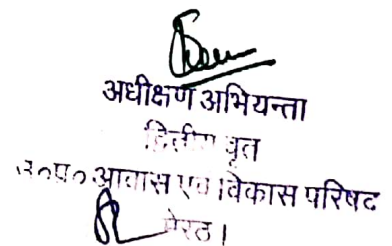 अधीक्षण अभियन्ता
द्वितीय वृत
उ०प्र० आवास एवं विकास परिषद
मेरठ।